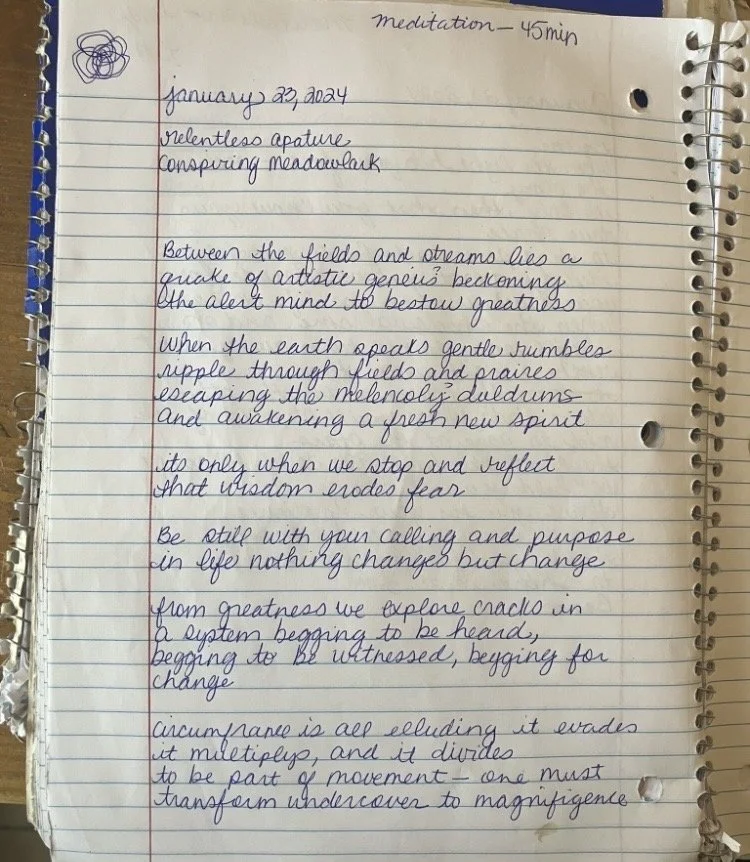 meditation – 45min
january 23, 2024
relentless apature
conspiring meadowlark
Between the fields and streams lies a
quake of artistic geneius beckoning
the alert mind to bestow greatness
When the earth speaks gentle rumbles
ripple through fields and praires
escaping the melencoly duldrums
and awakening a fresh new spirit
its only when we stop and reflect
that wisdom erodes fear
Be still with your calling and purpose
in life nothing changes but change
from greatness we explore cracks in
a system begging to be heard,
begging to be witnessed, begging for
change
is all elluding it evades
it multiplys, and it divides
to be part of movement – one must
transform undercover to magnifigence